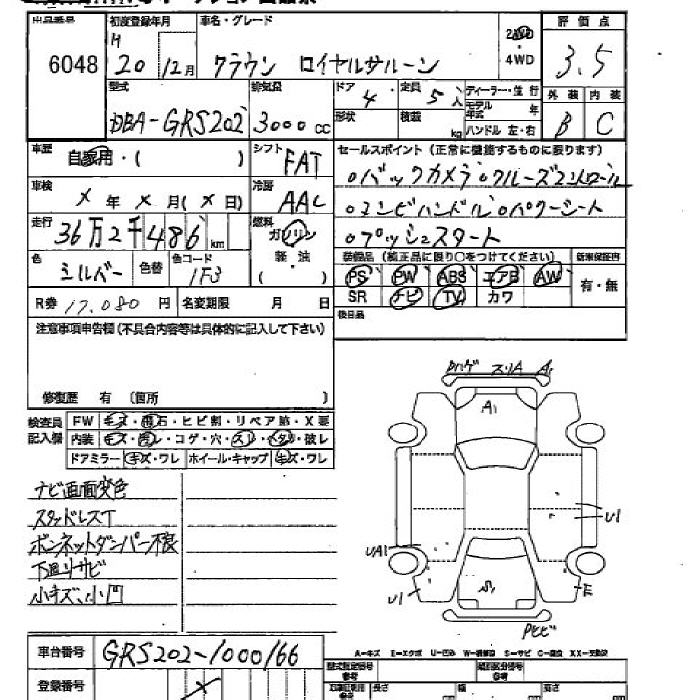 出品番号 初度登録年月 車名・グレード 評価点
6048 H 20年 12月 クラウン ロイヤルサルーン 2WD ・ 4WD 3.5
型式 排気量 ドア 4 定員 5人 ディーラー・並行 外装 内装
DBA-GRS202 3000cc 形状 積載 kg モデル年式 年 ハンドル 左・右 B C
車歴 自家用・( ) シフト FAT セールスポイント (正常に機能するものに限ります)
車検 X年X月(X日) 冷房 AAC oバックカメラ oクルーズコントロール
oコンビハンドル oパワーシート
走行 36万2千486km 燃料 ガソリン 軽・油 ( )
oプッシュスタート
色 シルバー 色替 色コード 1F3 装備品 (純正品に限り○をつけてください) 新車保証書
PS PW ABS エアB AW 有・無
R券 17,080円 名変期限 月 日 SR ナビ TV カワ
後日品
注意事項申告欄(不具合内容等は具体的に記入して下さい)
修復歴 有 (箇所 )
検査員記入欄 FW キズ・飛石・ヒビ割・リペア跡・X要
内装 キズ・汚レ・コゲ・穴・スレ・ヘタリ・破レ
ドアミラー キズ・ワレ ホイール・キャップ キズ・ワレ
Pハゲ スリA A1
A1
ナビ画面変色
スタッドレスT
ボンネットダンパー不良
下回りサビ
小キズ、小凹
U1
UA1
U1
E
S1
Pヒビ
車台番号 GRS202-1000166
A-キズ E-エクボ U-凹み W-補修跡 S-サビ C-腐食 XX-交換済
登録番号
型式指定番号 参考 類別区分番号 参考
長さ 幅 高さ